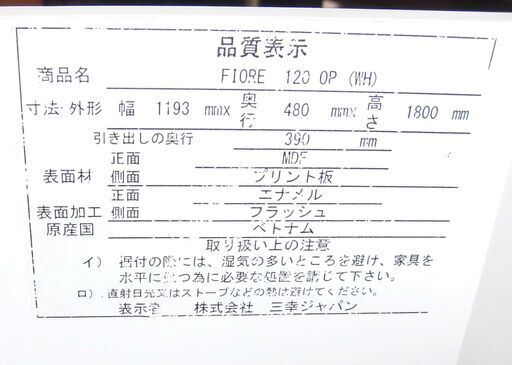 品質表示
商品名 FIORE 120 OP (WH)
寸法・外形 幅 1193 mmx 奥行 480 mmx 高さ 1800 mm
引き出しの奥行 390 mm
正面 MDF
表面材 側面 プリント板
正面 エナメル
表面加工 側面 フラッシュ
原産国 ベトナム
取り扱い上の注意
イ） 据付の際には、湿気の多いところを避け、家具を
水平に保つ為に必要な処置を講じて下さい。
ロ）.直射日光又はストーブなどの熱は避けてください。
表示者 株式会社 三幸ジャパン